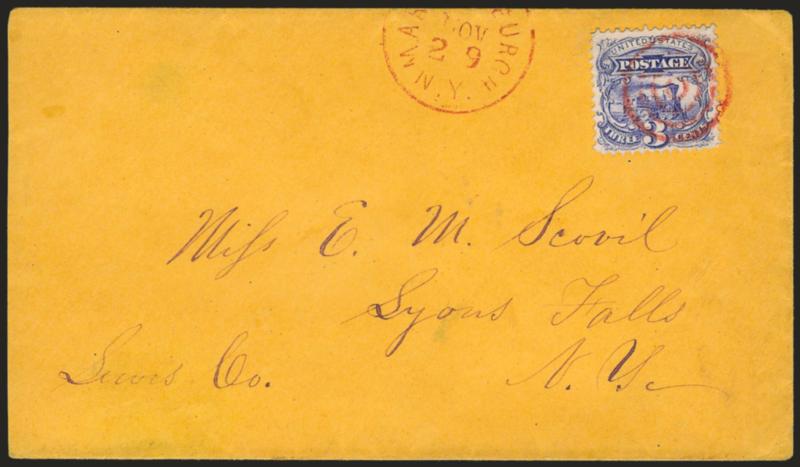 NOV
29
N.Y.
UNITED STATES
POSTAGE
THREE 3 CENTS
Miss E. M. Scovil
Lyons Falls
Lewis Co. N. Y.